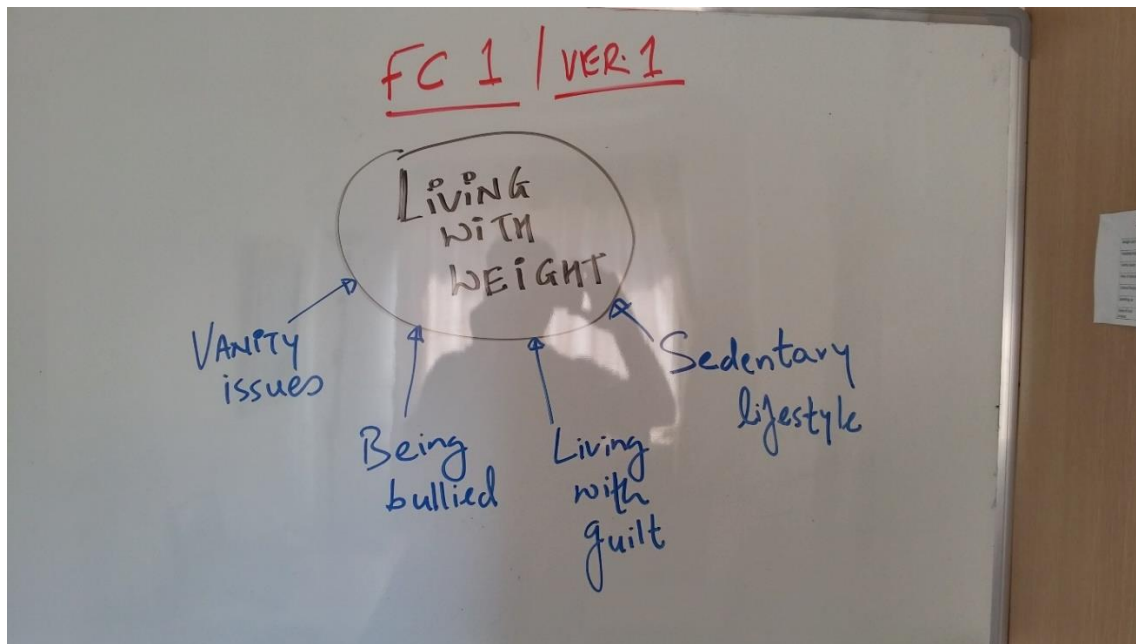 FC 1 / VER. 1
LiViNG
WiTH
WEiGHT
VANiTY
issues
Being
bullied
Living
with
guilt
Sedentary
lifestyle